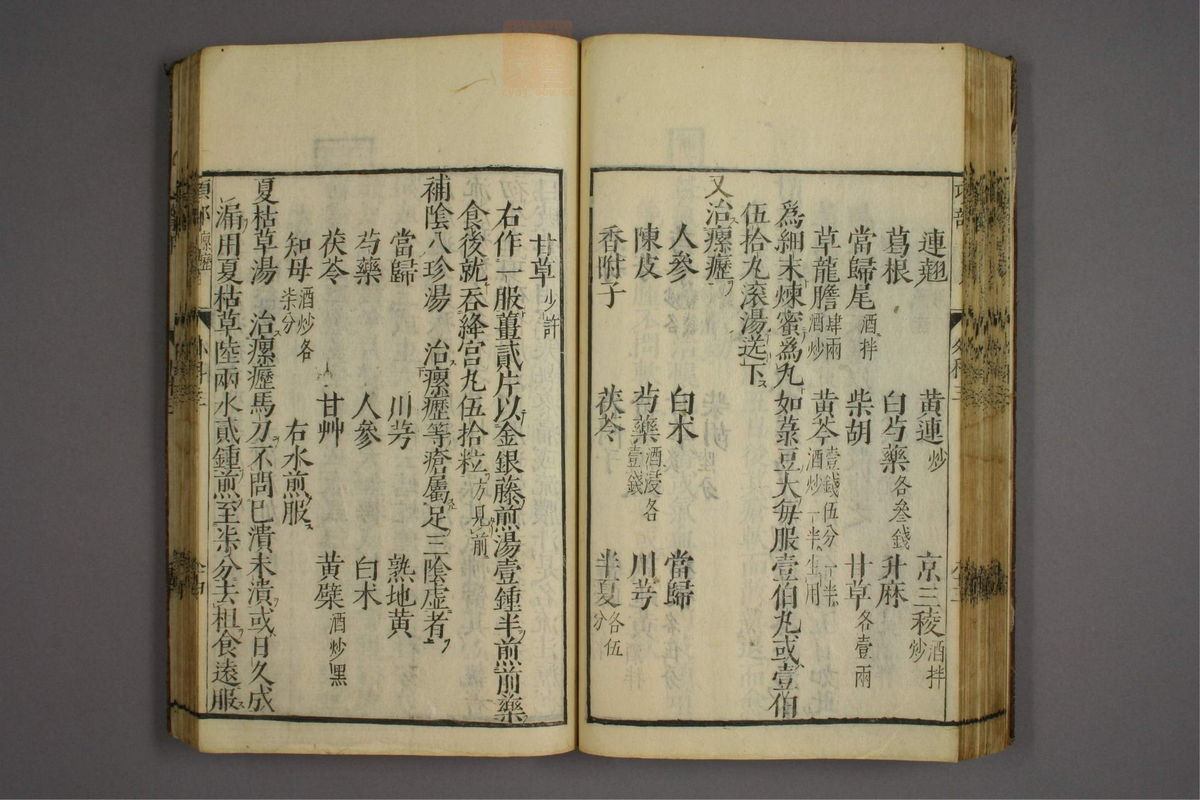 連翹　黃連炒　京三稜酒拌炒
葛根　白芍藥各叄錢　升麻
當歸尾酒拌　柴胡　甘草各壹兩
草龍膽肆兩酒炒　黃芩壹錢伍分一半酒炒一半生用
爲細末煉蜜爲丸如菉豆大每服壹伯丸或壹伯
伍拾丸滾湯送下
又治瘰癧
人參　白朮　當歸
陳皮　芍藥酒浸各壹錢　川芎
香附子　茯苓　半夏各伍分
甘草少許
右作一服薑貳片以金銀藤煎湯壹鍾半煎前藥
食後就吞絳宮丸伍拾粒方見前
補陰八珍湯　治瘰癧等瘡屬足三陰虛者
當歸　川芎　熟地黃
芍藥　人參　白朮
茯苓　甘艸　黃檗酒炒黑
知母酒炒各柒分　右水煎服
夏枯草湯　治瘰癧馬刀不問已潰未潰或日久成
漏用夏枯草陸兩水貳鍾煎至柒分去柤食遠服